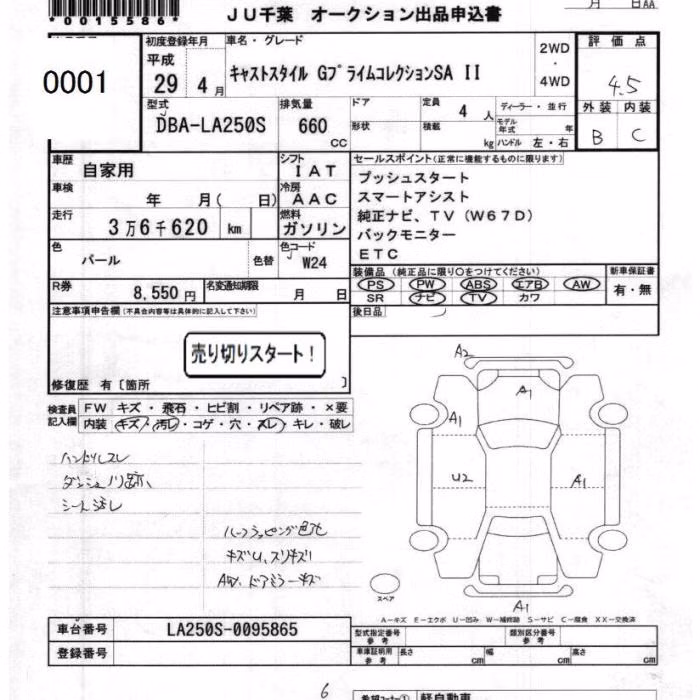 *0015586*
月 日AA
JU千葉 オークション出品申込書
0001
初度登録年月 車名・グレード 2WD・4WD 評価点
平成 29 4月 キャストスタイル GプライムコレクションSA II 4.5
型式 排気量 ドア 定員 4人 ディーラー・並行 外装 内装
DBA-LA250S 660 CC 形状 積載 kg モデル年式 年 ハンドル 左・右 B C
車歴 自家用 シフト IAT セールスポイント(正常に機能するものに限ります)
車検 年 月( 日) 冷房 AAC プッシュスタート
スマートアシスト
走行 3万6千620 km 燃料 ガソリン 純正ナビ、TV(W67D)
バックモニター
色 パール 色替 色コード W24 ETC
装備品(純正品に限り○をつけてください) 新車保証書
R券 8,550円 名変通知期限 月 日 PS PW ABS エアB AW 有・無
SR ナビ TV カワ
注意事項申告欄(不具合内容等は具体的に記入して下さい) 後日品
売り切りスタート!
修復歴 有〔箇所 〕
検査員記入欄 FW キズ・飛石・ヒビ割・リペア跡・×要
内装 キズ・汚レ・コゲ・穴・スレ・キレ・破レ
A2
A1
A1
U2
A1
A1
ハンドルスレ
ダッシュノリ跡、
シート汚レ
キズU、スリキズ
AW、ドアミラーキズ
スペア
A-キズ E-エクボ U-凹み W-補修跡 S-サビ C-腐食 XX-交換済
車台番号 LA250S-0095865 型式指定番号 参考 類別区分番号 参考
登録番号 車庫証明用 参考 長さ cm 幅 cm 高さ cm
6
希望コーナー① 軽自動車